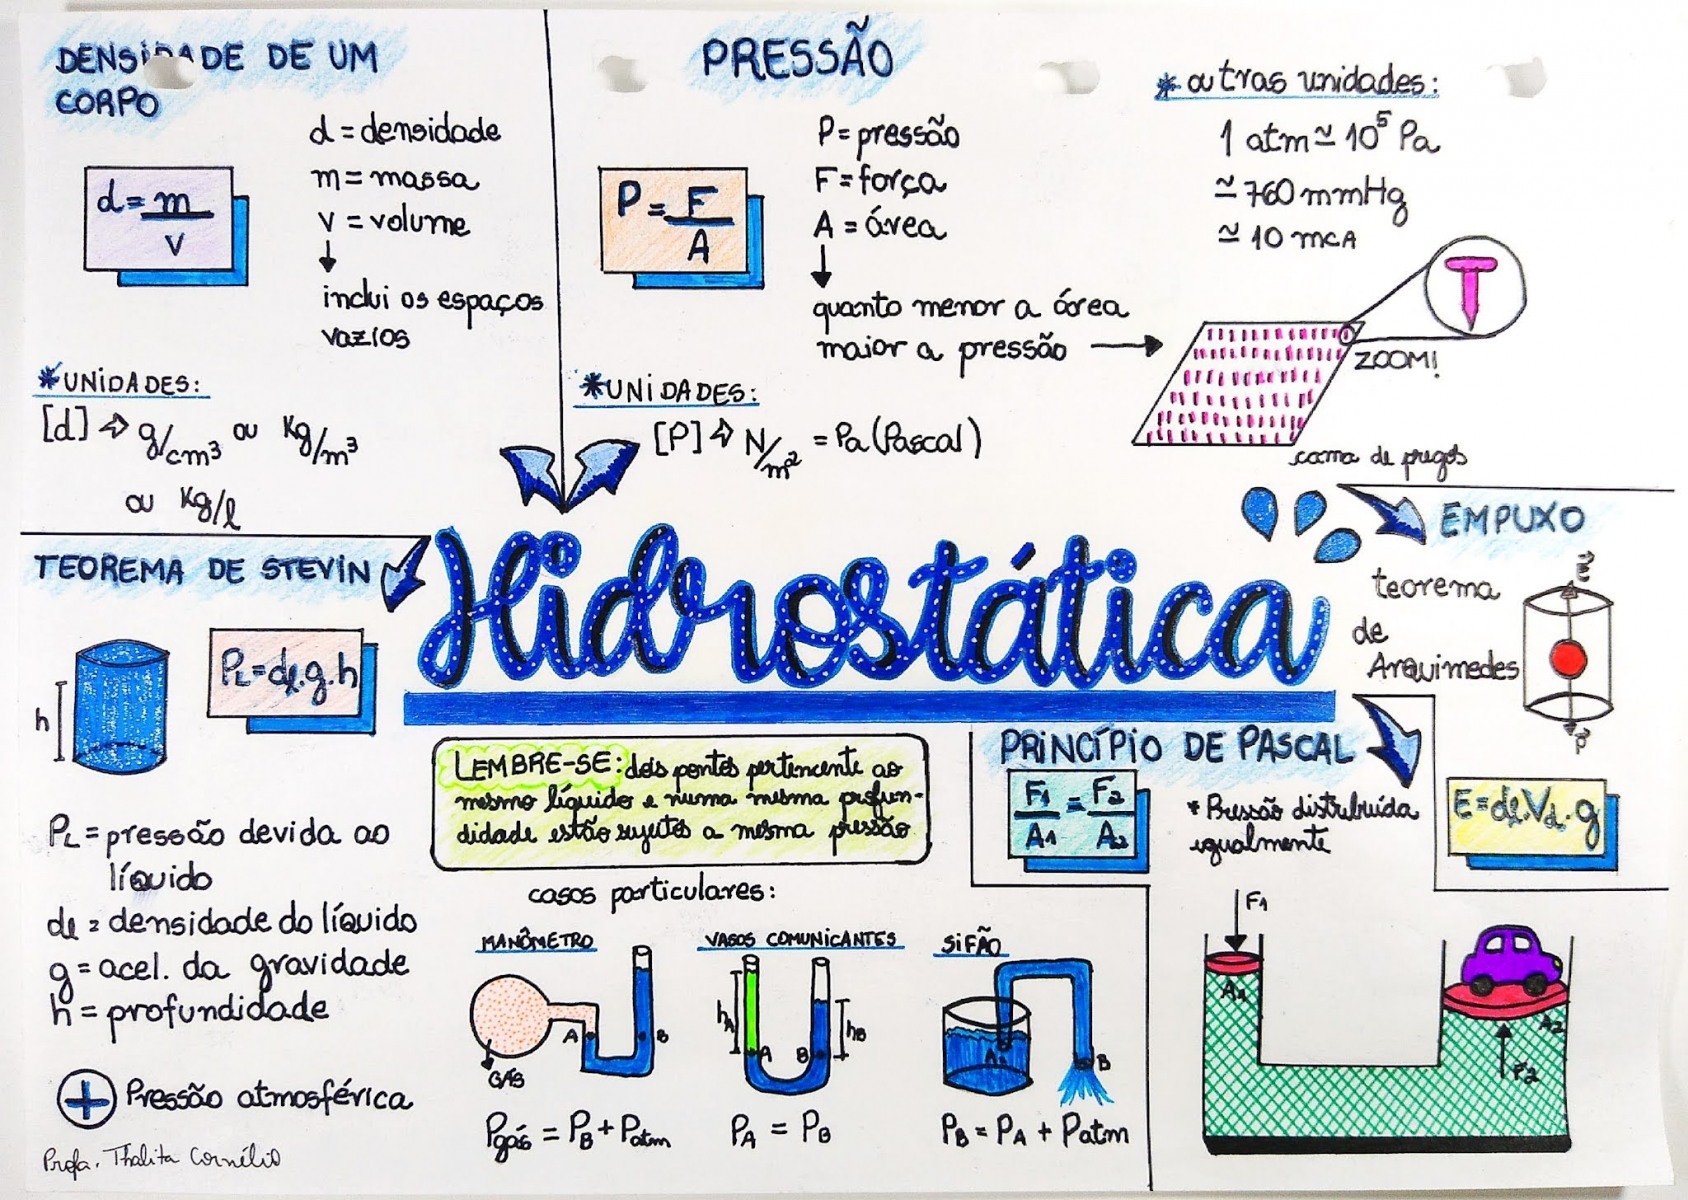 DENSIDADE DE UM
CORPO
d = m
v
d = densidade
m = massa
v = volume
inclui os espaços
vazios
*UNIDADES:
[d] ⇨ g/cm³ ou Kg/m³
ou Kg/l
PRESSÃO
P = F
A
P = pressão
F = força
A = área
quanto menor a área
maior a pressão
*UNIDADES:
[P] ⇨ N/m² = Pa (Pascal)
* outras unidades:
1 atm ≃ 10⁵ Pa
≃ 760 mmHg
≃ 10 mcA
ZOOM!
cama de pregos
Hidrostática
TEOREMA DE STEVIN
h
PL = dl.g.h
PL = pressão devida ao
líquido
dl = densidade do líquido
g = acel. da gravidade
h = profundidade
+ Pressão atmosférica
Profa. Thalita Cornélio
LEMBRE-SE: dois pontos pertencente ao
mesmo líquido e numa mesma profun-
didade estão sujeitos a mesma pressão
casos particulares:
MANÔMETRO
A
B
GÁS
Pgás = PB + Patm
VASOS COMUNICANTES
hA
A
B
hB
PA = PB
SIFÃO
A
B
PB = PA + Patm
EMPUXO
teorema
de
Arquimedes
E
P
E = dl.Vd.g
PRINCÍPIO DE PASCAL
F1 = F2
A1 A2
* Pressão distribuída
igualmente
F1
A1
A2
F2